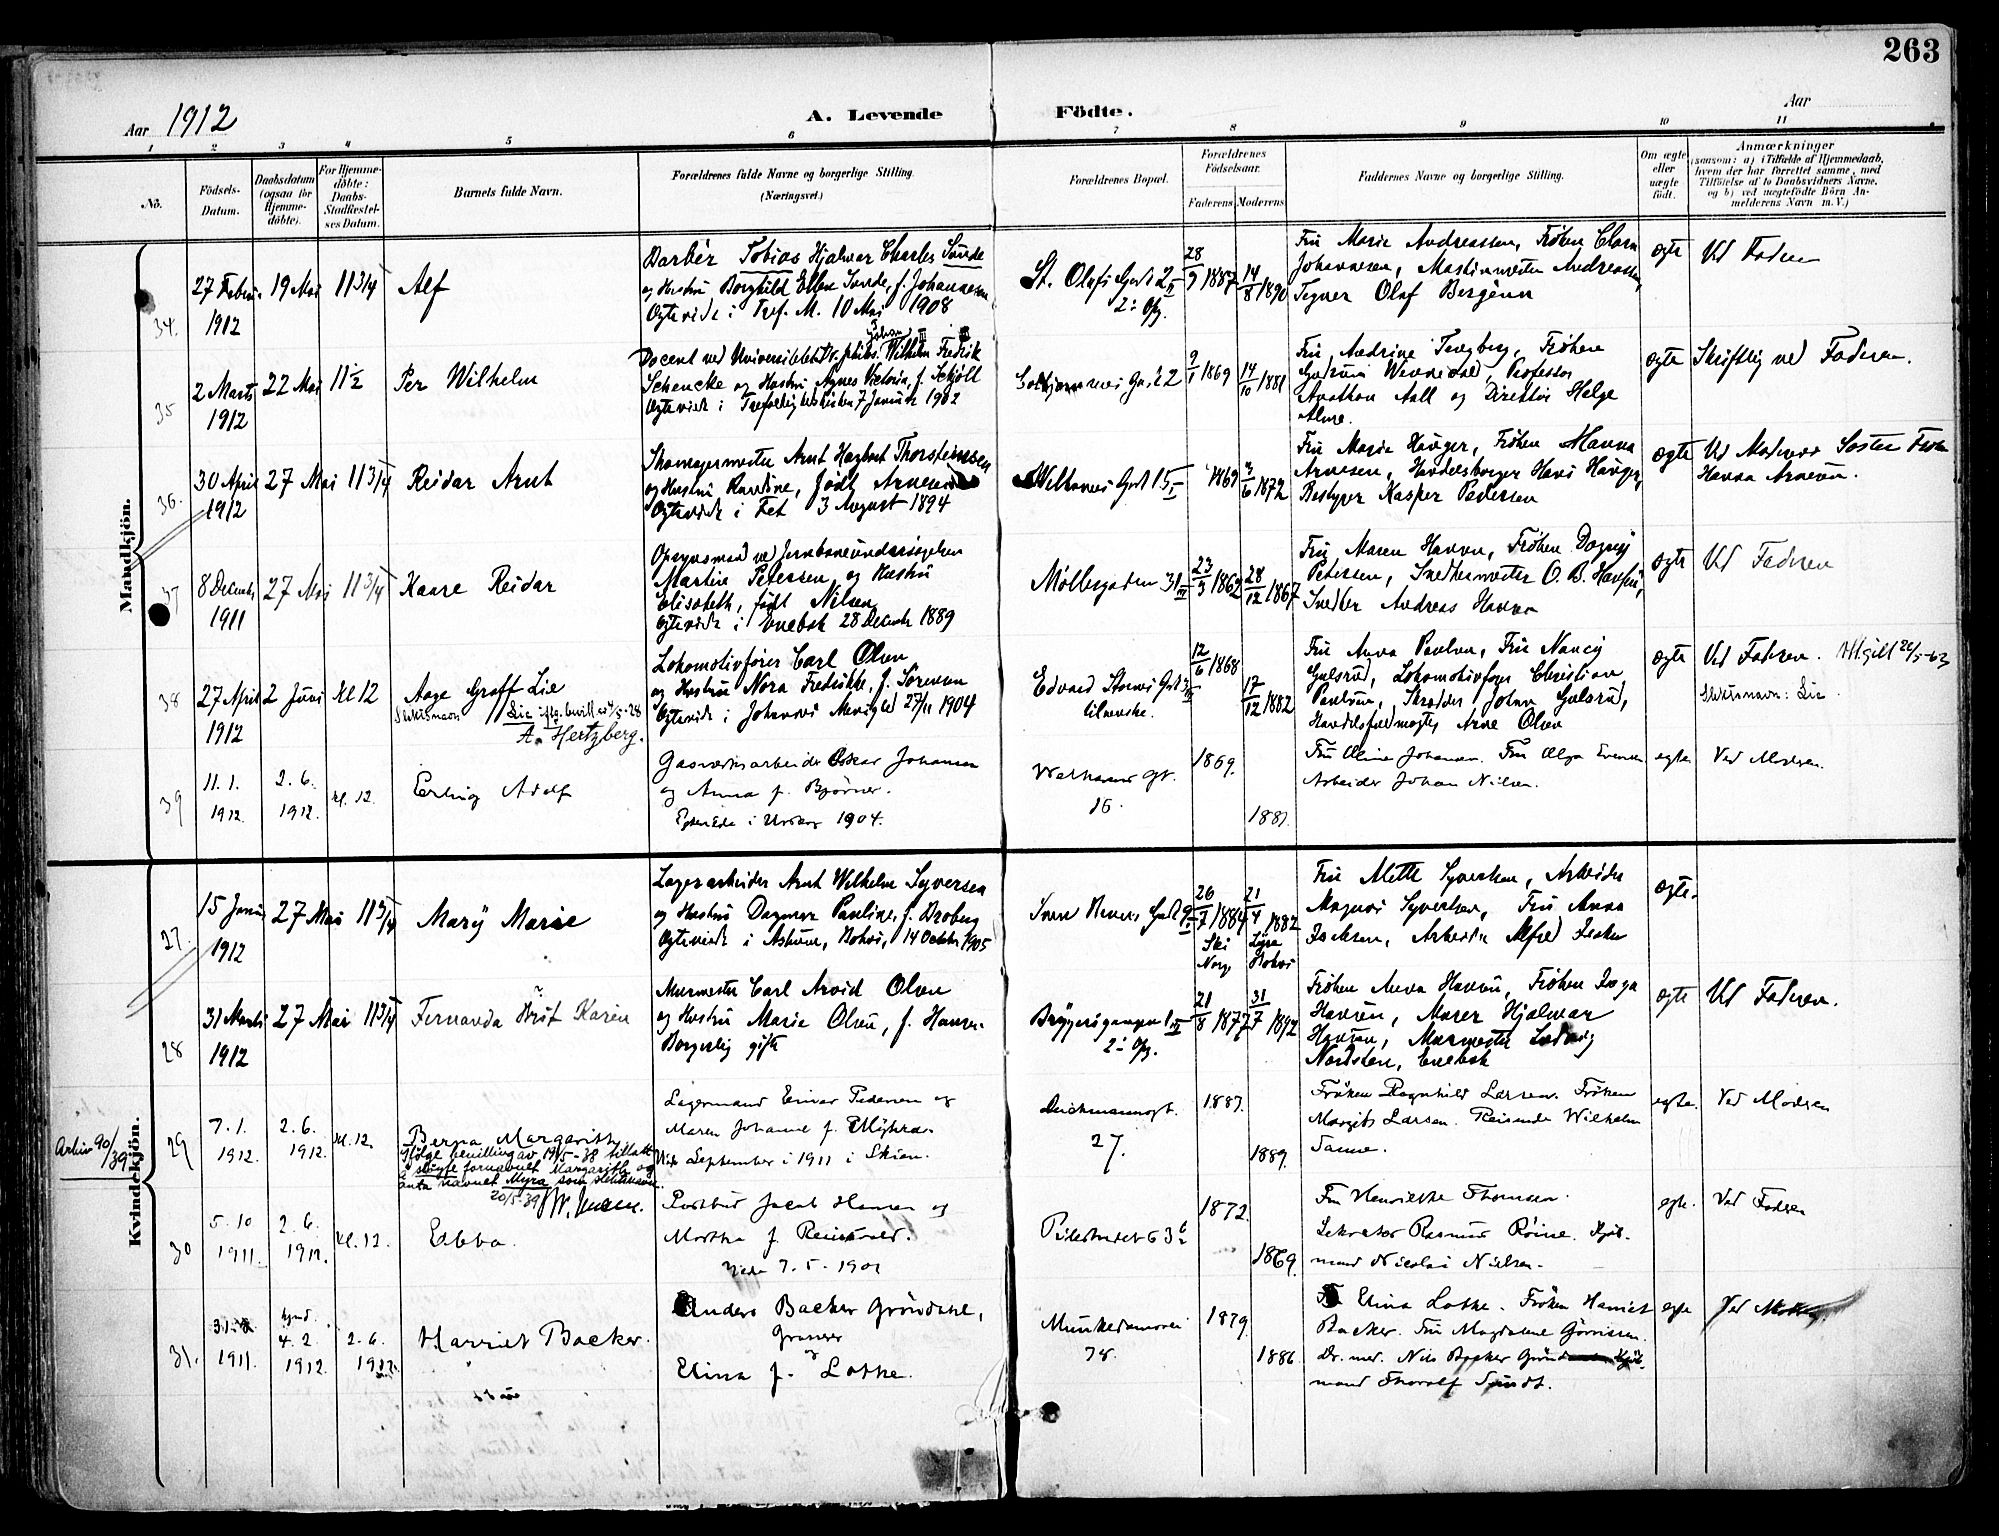 263
Aar 1912
A. Levende Födte.
Aar
1 2 3 4 5 6 7 8 9 10 11
No.
Födsels-Datum.
Daabsdatum (ogsaa for Hjemmedöbte).
For Hjemmedöbte: Daabs-Stadfestelses Datum.
Barnets fulde Navn.
Forældrenes fulde Navne og borgerlige Stilling.
(Næringsvei.)
Forældrenes Bopæl.
Forældrenes Födselsaar.
Faderens Moderens
Faddernes Navne og borgerlige Stilling.
Om ægte eller uægte födt.
Anmærkninger
(saasom: a) i Tilfælde af Hjemmedaab, hvem der har forrettet samme, med Tilföielse af to Daabsvidners Navne, og b) ved uegtefödte Börn Anmelderens Navn m. V.)
Mandkjön.
34. 27 Febru. 1912
19 Mai
11 3/4
Alf
Barbér Tobias Hjalmar Charles Sunde
og Hustru Borghild Ellen Sunde, f. Johannesen
Ogteviede i Tref. M. 10 Mai 1908
St. Olafs Gade 2 II
2- Opg.
28/9 1887
14/8 1890
Fru Marie Andreassen, Frøken Clara
Johannesen, Maskinmester Andreassen
Tegner Olaf
ogte
Ved Faderen
35 2 Marts 1912
22 Mai
11 1/2
Per Wilhelm
Docent ved Universitetet Dr. philos. Wilhelm Fredrik
Schencke og Hustru Agnes Victoria, f. Schjöll
Ogteviede i Trefoldighedskirken 7 Januar 1902
22
9/1 1869
14/10 1881
Fru Andrine Frøken
Gudrun Professor
Anathon Aall og Direktör Helge
ogte
Skriftlig ved Faderen.
36. 30 April 1912
27 Mai
11 3/4
Reidar Arnt
Skomagermester Arnt Hagbart Thorstensen
og Hustru födt Arnesen
Ogteviede i Fet 3 August 1894
Gade 15 I
1869
3/6 1872
Fru Marie Hauger, Frøken Hanna
Arnesen, Handelsborger Hans Hauger,
Bestyrer Kasper Pedersen
ogte
Ved Moderens Søster Frøken
Hanna Arnesen.
37 8 Decembr 1911
27 Mai
11 3/4
Kaare Reidar
Opsynsmand ved Jernbaneundersögelsen
Martin Petersen og Hustru
Elisabeth, födt Nilsen
Ogteviede i Enebak 28 Decembr 1889
Møllergaden 31 III
23/3 1862
28/12 1867
Fru Maren Hansen, Frøken Dagny
Petersen, Snedkermester O. B. Hansen,
Snedker Andreas Hansen
ogte
Ved Faderen
38 27 April 1912
2 Juni
Kl 12
Aage Graff Lie
Slektsnavn Lie iflg. bevill. av 4/5-28
A. Hertzberg.
Lokomotivfører Carl Olsen
og Hustru Nora Fredrikke, f. Sörensen
Ogteviede i Johannes Menighed 27/11 1904
Edvard Storms Gade
12/6 1868
17/12 1882
Fru Anna Paulsen, Fru Nancy
Gulsrud, Lokomotivfører Christian
Paulsen, Skrædder Johan Gulsrud,
Handelsfuldmægtig Arne Olsen
ogte
Ved Faderen. Attgitt 22/5-63
Slektsnavn: Lie
39 11. 1. 1912.
2. 6. 1912.
kl. 12.
Erling Adolf
Gasværksarbeider Oskar Johansen
og Anna f. Bjørner.
Egteviede i Urskog 1904.
gt. 16.
1869.
1881.
Fru Oline Johansen. Fru Olga Evensen
Arbeider Johan Nilsen.
egte
Ved Moderen.
Kvindekjön.
27. 15 Januar 1912
27 Mai
11 3/4
Mary Marie
Lagerarbeider Arnt Wilhelm Syversen
og Hustru Dagmar Pauline, f. Broberg
Ogteviede i Askim, 14 Octobr 1905
Sven Gade 9 II
26/7 1884
Ski
Norg.
21/4 1882
Fru Mette Syversen, Arbeider
Magnus Syversen, Fru Anna
Isaksen, Arbeider Alfred Isaksen
ogte.
28 31 Marts 1912
27 Mai
11 3/4
Fernanda Karin
Murmester Carl Arvid Olsen
og Hustru Marie Olsen, f. Hansen
Borgerlig gift
Bryggergangen 1 II
2- Opg.
21/8 1877
31/7 1892
Frøken Anna Hansen, Frøken Inga
Hansen, Murer Hjalmar
Hansen, Murmester Ludvig
Nordsten, Enebak
ogte
Ved Faderen.
Arkiv 90/39
29 7. 1. 1912.
2. 6. 1912.
kl. 12.
Berna Margarith
Ifølge bevilling av 19/5-38 tillatt
å sløyfe fornavnet Margarith og
anta navnet Myra som slektsnavn.
20/5-39
Lagermand Einar Pedersen og
Maren Johanne f. Myhra.
Viede September i 1911 i Skien.
Deichmannsgt. 27.
1887.
1889.
Frøken Ragnhild Larsen. Frøken
Margit Larsen. Reisende Wilhelm
egte.
Ved Moderen
30 5. 10 1911.
2. 6. 1912.
kl. 12.
Ebba.
Postbud Jacob Hansen og
Martha f.
Viede 7. 5. 1901
Pilestrædet 63
1872.
1869.
Fru Henriette Thomsen.
Sekretær Rasmus Røine. Kjøb-
mand Nicolai Nielsen.
egte.
Ved Faderen
31. 1911.
Hjmd. 4. 2. 1912
2. 6. 1912.
Harriet Backer.
Anders Backer Grøndahl,
Grosserer
og
Elina f. Lothe.
Munkedamsvei 78.
1879.
1886.
Fru Elina Lothe. Frøken Harriet
Backer. Fru Magdalene Gørrissen.
Dr. med. Nils Backer Grøndahl Kjøb-
mand Thoralf Sundt.
egte
Ved